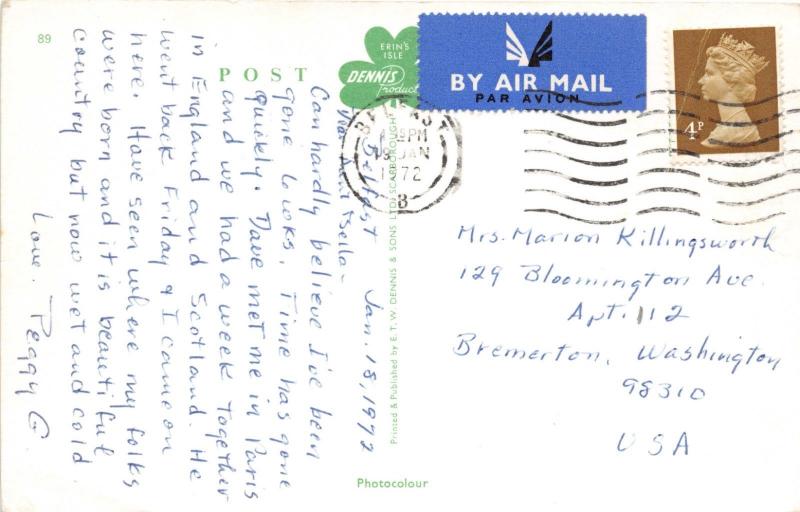 89
POST
ERIN'S
ISLE
DENNIS
Product
BY AIR MAIL
PAR AVION
4P
BELFAST
PM
18 JAN
1972
B
Belfast Jan. 18, 1972
Dear
Can hardly believe I've been
gone 6 wks. Time has gone
quickly. Dave met me in Paris
and we had a week together
in England and Scotland. He
went back Friday & I came on
here. Have seen where my folks
were born and it is beautiful
country but now wet and cold
Love. Peggy G
Printed & Published by E. T. W. DENNIS & SONS LTD. SCARBOROUGH
Mrs. Marion Killingsworth
129 Bloomington Ave.
Apt. 112
Bremerton, Washington
98310
USA
Photocolour